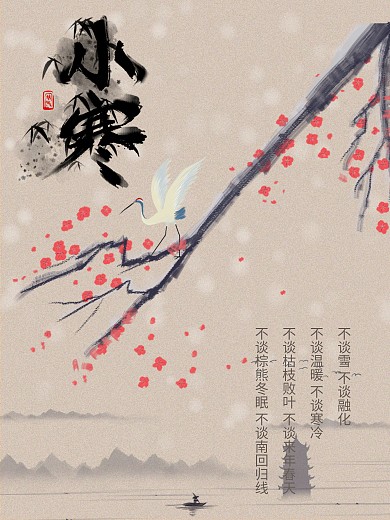 小寒
不谈雪 不谈融化
不谈温暖 不谈寒冷
不谈枯枝败叶 不谈来年春天
不谈棕熊冬眠 不谈南回归线